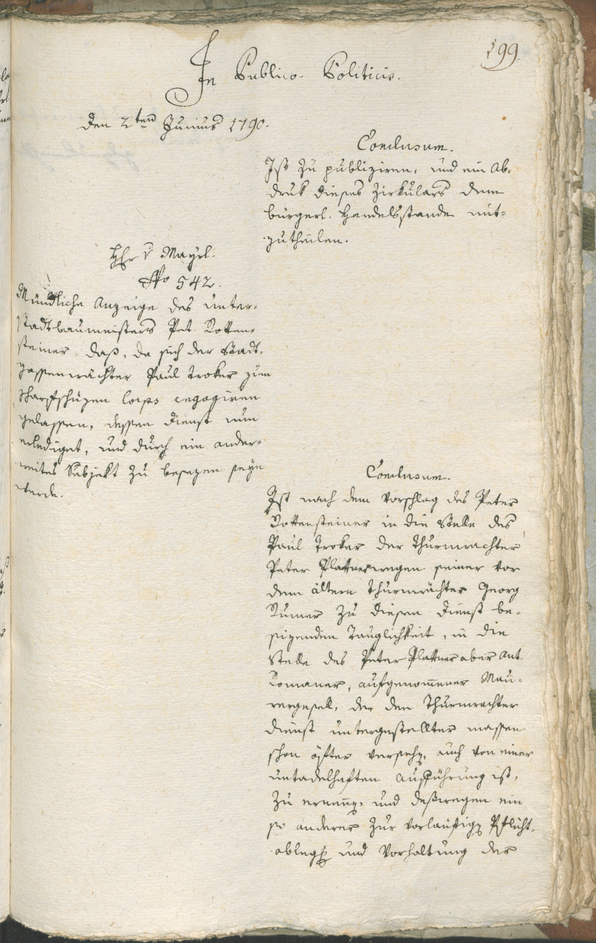 199.
In Publico-Politicis.
Den 2ten Junius 1790.
Conclusum.
Ist zu publiziren, und ein Ab-
druk dieses Zirkulars dem
bürgerl. Handelsstande mit-
zutheilen.
Mayrl.
No 542.
Mündliche Anzeige des Unter-
stadtbaumeisters Pet Rotten-
steiner, daß, da sich der Stadt-
gassenwächter Paul Troker zum
Scharfschüzen Corps engagiren
gelassen, dessen Dienst nun
erlediget, und durch ein ander-
weites Subjekt zu besezen seyn
werde.
Conclusum.
Ist nach dem Vorschlag des Peter
Rottensteiner in die Stelle des
Paul Troker der Thurmwachter
Peter Plattner wegen seiner vor
dem ältern Thurmwächter Georg
zu diesem Dienst be-
sizenden Tauglichkeit, in die
Stelle des Peter Plattner aber Ant
Romaner, aufgenommener Mau-
rergesell, der den Thurmwachter
dienst untergestellter massen
schon öfter versehen, auch von einer
untadelhaften Aufführung ist,
zu ernennen, und deßwegen ein
so anderer zur vorläufigen Pflicht-
ablegung und Vorhaltung der